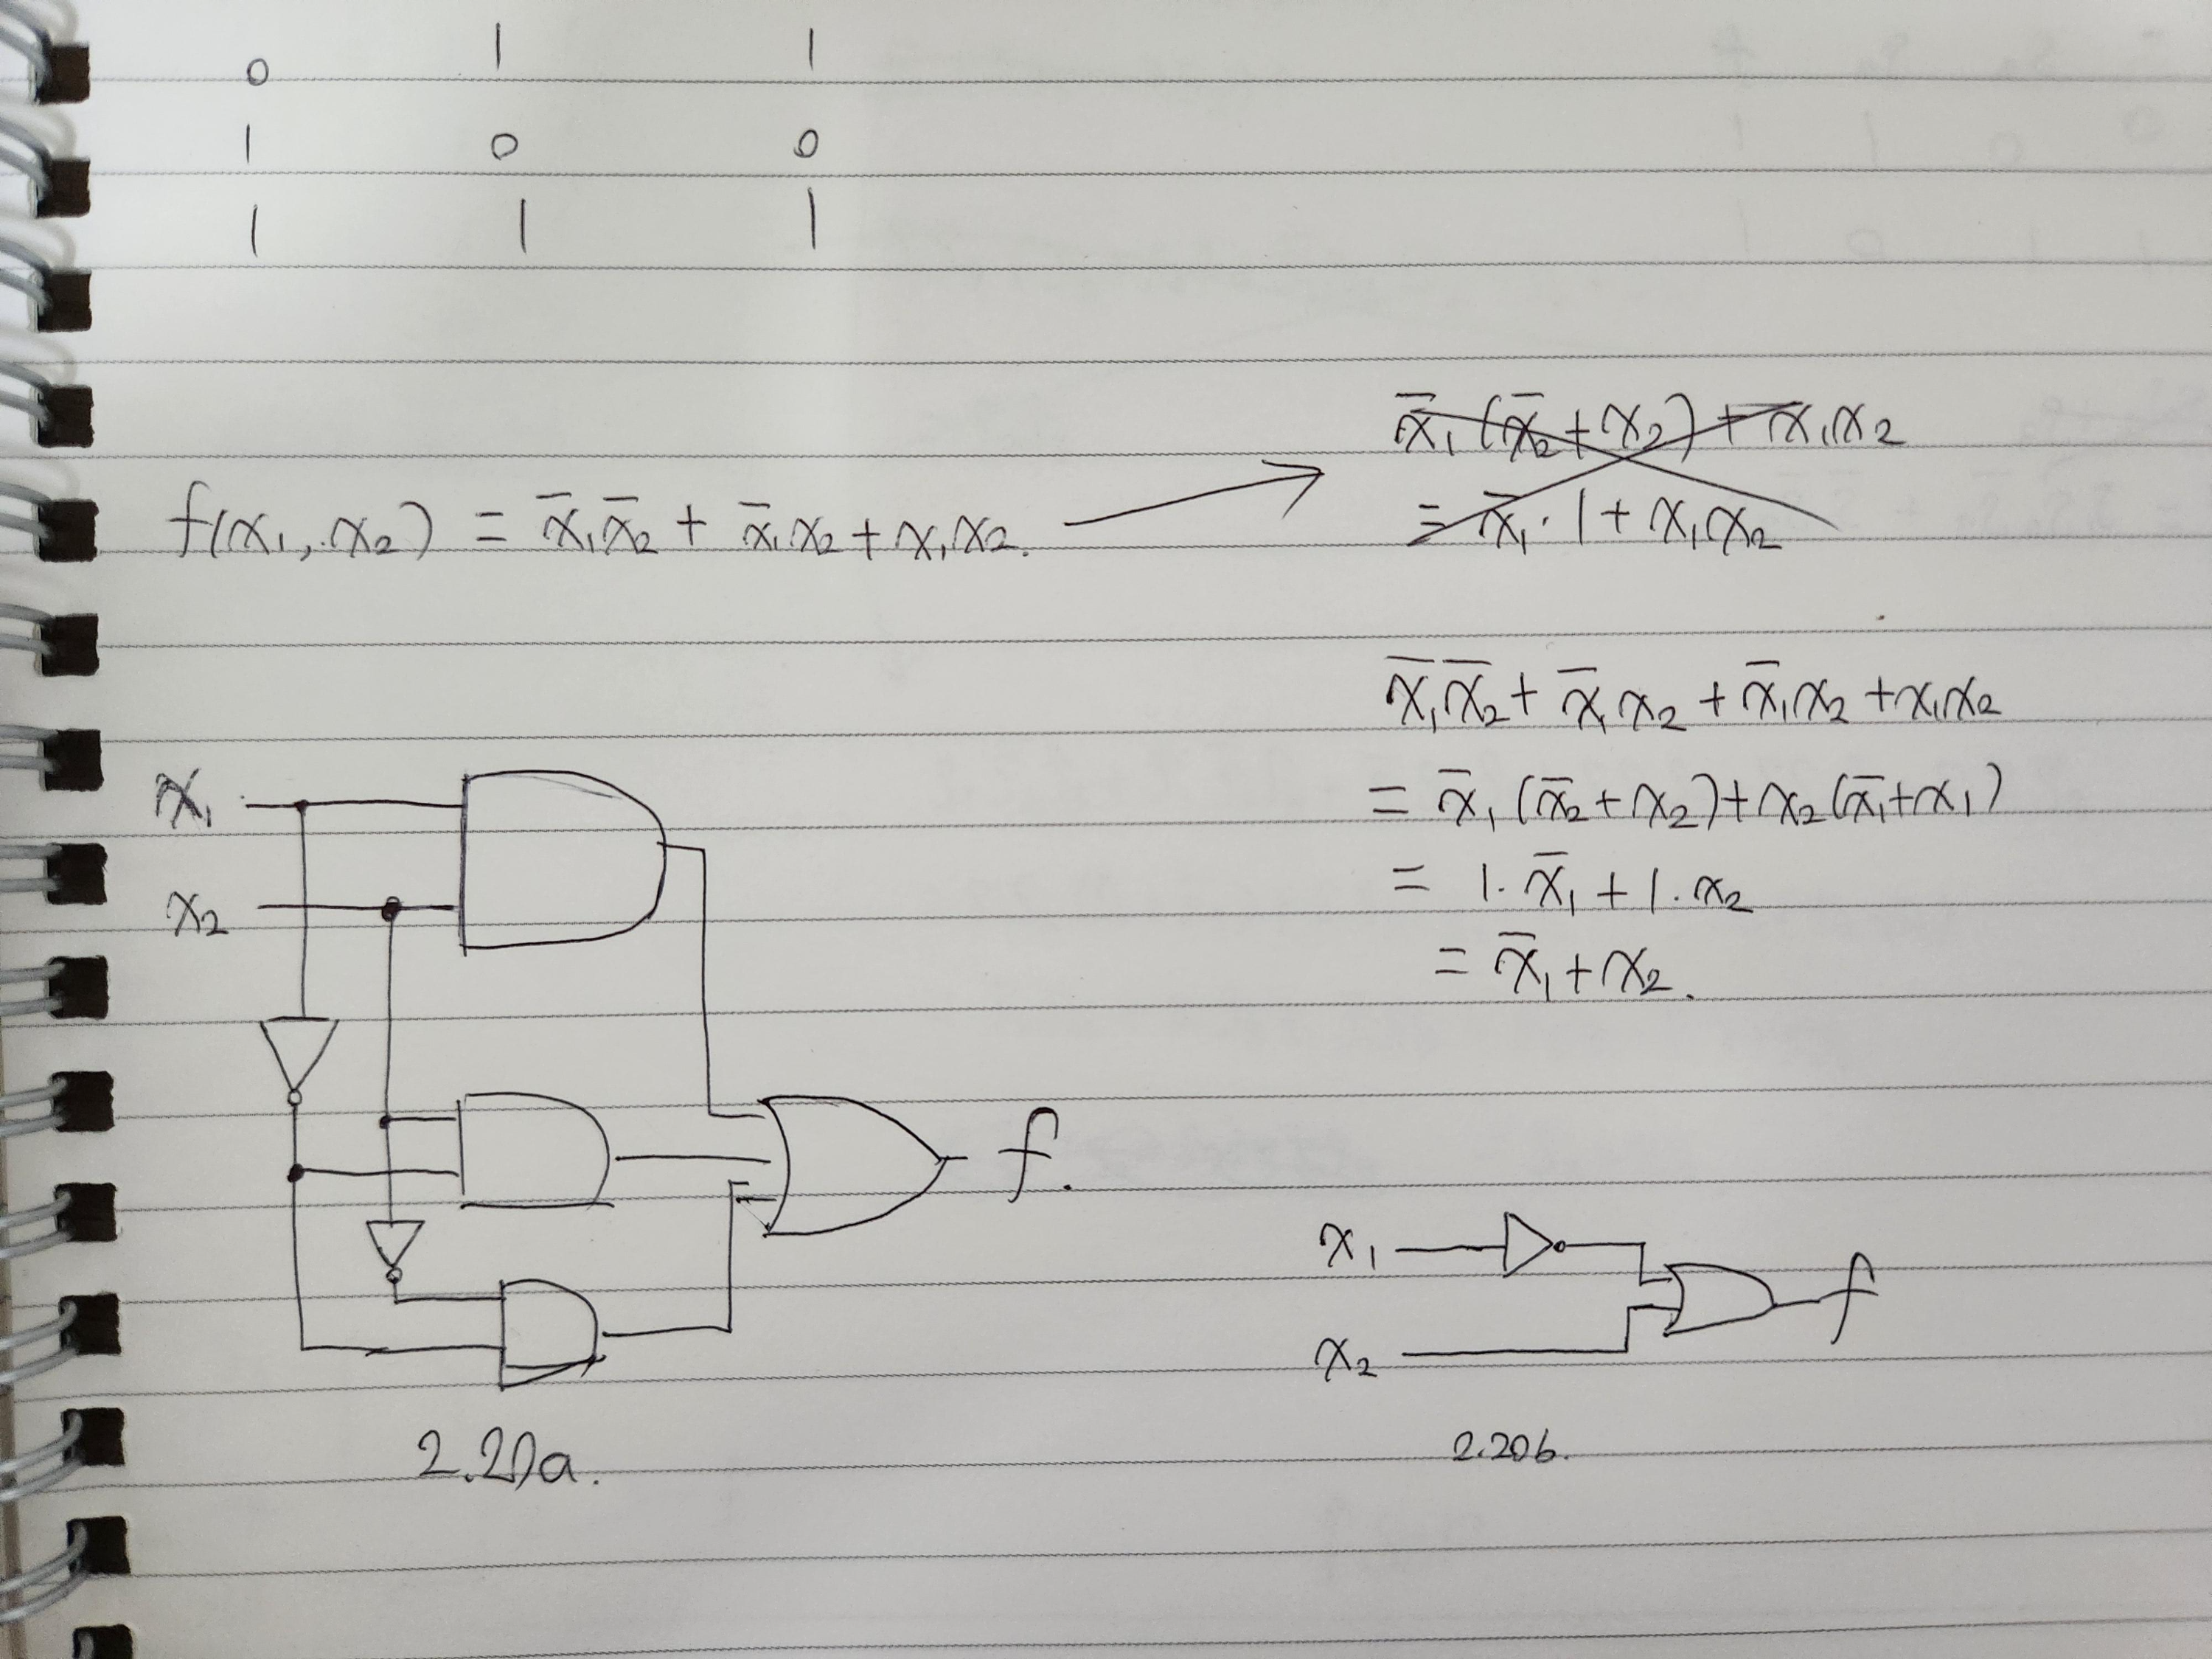 0 1 1
1 0 0
1 1 1
f(x₁, x₂) = x̅₁x̅₂ + x̅₁x₂ + x₁x₂.
x̅₁(x̅₂+x₂) + x₁x₂
= x̅₁·1 + x₁x₂
x̅₁x̅₂ + x̅₁x₂ + x̅₁x₂ + x₁x₂
= x̅₁(x̅₂+x₂)+x₂(x̅₁+x₁)
= 1·x̅₁ + 1·x₂
= x̅₁+x₂.
x₁
x₂
f.
2.20a.
x₁
x₂
f
2.20b.